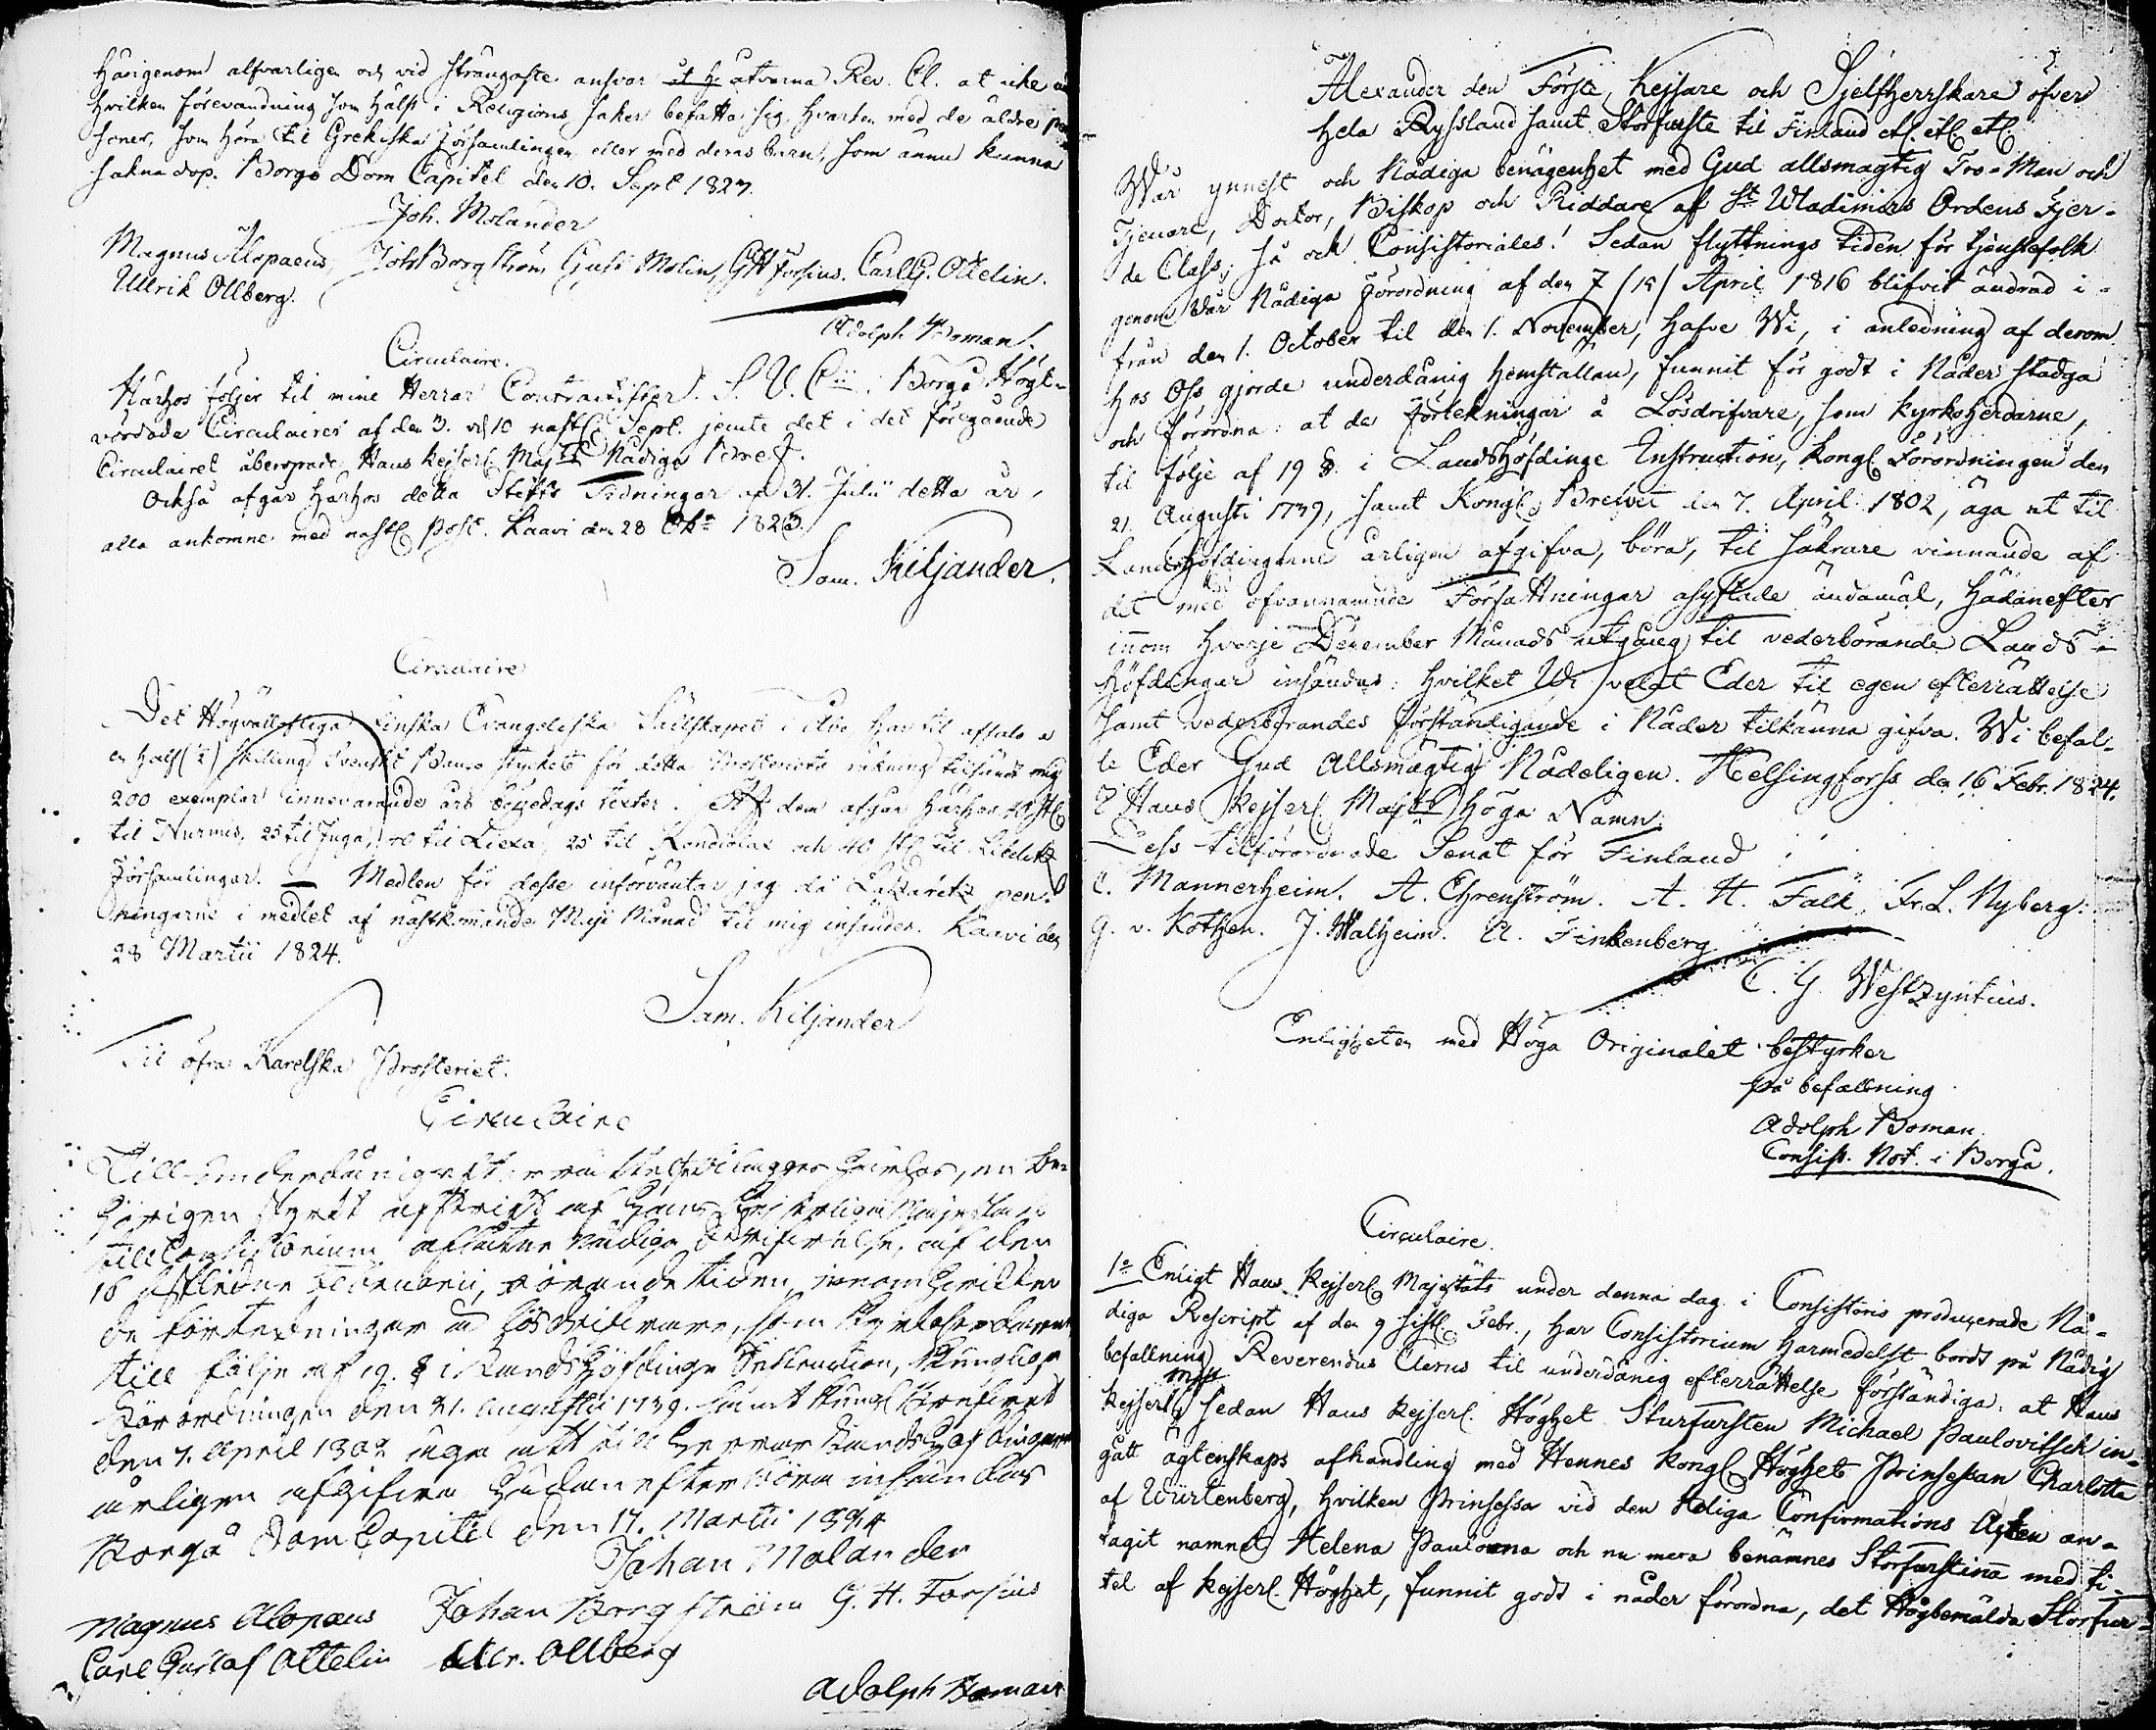 Härigenom alfvarligen och vid strängaste ansvar at h. åtvarna Rev. Cl. at icke
hvilken förevändning som hälst i Religions saker befatta sig hvarken med de äldre per-
soner, som höra til Grekiska församlingen eller med deras barn, som ännu kunna
sakna dop. Borgo Dom Capitel den 10. Sept 1823.
Joh. Molander
Magnus Alopaeus, Joh Borgström Gust Molin, GH Forsius. Carl G. Ottelin.
Ullrik Ollberg.
Adolph Boman.
Circulaire.
Härhos följer til mine Herrar Contractister S. V. C:ii i Borgå Högt-
vördade Circulairer af den 3. och 10 nästl. Sept. jemte det i det föregående
Circulairet åberopade Hans Kejserl. Maj:ts Nådiga Bref.
Också afgår härhos detta Stifts Tidningar af 31. Julii detta år,
alla ankomne med nästl. post. Kaavi den 28 Okt 1823.
Sam. Kiljander.
Circulaire
Det Högvällofliga Finska Evangeliska Sällskapet i Åbo har til afsalu a
en half (½) skilling Svenskt Banco stycket för detta Prosteriets räkning tilsändt mig
200 exemplar innevarande års böndags texter. Af dem afgår härhos 40 st.
til Nurmis, 25 til Juga, til Liexa, 25 til Kondiolax och 40 st. til Libelitz
Församlingar. — Medlen för desse införväntar jag då Lazaretz pen-
ningarne i medlet af nästkommande Maji Månad til mig insändes. Kaavi den
28 Martii 1824.
Sam. Kiljander
Til öfra Karelska Prosteriet.
Circulaire
Till underdånigst bilägges härhos, en be-
hörigen styrkt afskrift af Hans Kejserliga Majestäts
till Consistorium aflåtne Nådiga Skrifvelse, af den
16 sistledne Februarii, rörande tiden, inom hvilken
de förtekningar å Lösdrifvare, som Kyrkoherdarne
till följe af 19. § i Landshöfdinge Instruction, Kongliga
Förordningen den 21. Augusti 1739. samt Kongl Brefvet
den 7. April 1802 äga att till Herrar Landshöfdingarne
årligen afgifva hädanefter böra insändas
Borgå Dom Capitel den 17. Martii 1824
Johan Molander
Magnus Alopæus Johan Borgström G. H. Forsius
Carl Gustaf Ottelin Ullr. Ollberg
Adolph Boman
Alexander den Förste, Kejsare och Sjelfherrskare öfver
hela Ryssland samt Storfurste til Finland etc. etc. etc.
Vår ynnest och Nådiga benägenhet med Gud allsmägtig Tro-Man och
Tjenare, Doctor, Biskop och Riddare af St Wladimirs Ordens Fjer-
de Class, så och Consistoriales! Sedan flyttnings tiden för tjenstefolk
genom Vår Nådiga Förordning af den 7 (19) April 1816 blifvit ändrad i-
från den 1. October til den 1. November, hafve Wi, i anledning af derom
hos Oss gjorde underdånig hemställan, funnit för godt i Nåder stadga
och förordna: at de Förtekningar å Lösdrifvare, som kyrkoherdarne,
til följe af 19 §. i Landshöfdinge Instruction, Kongl. Förordningen den
21. Augusti 1739, samt Kongl. Brefvet den 7. April 1802, äga at til
Landshöfdingarne årligen afgifva, böra, til säkrare vinnande af
det med ofvannämnde Författningar asyftade ändamål, hädanefter
innom hvarje December Månads utgång til vederbörande Lands-
Höfdingar insändas: hvilket Wi velat Eder til egen efterrättelse
samt vederbörandes förständigande i Nåder tilkänna gifva. Wi befal-
le Eder Gud Allsmägtig Nådeligen. Helsingforss den 16 Febr. 1824.
I Hans Kejserl. Maj:ts Höga Namn
Dess tilförordnade Senat för Finland
C. Mannerheim. A. Ehrenström. A. H. Falk. Fr. L. Nyberg.
G. v. Kothen. J. Walheim. A. Finkenberg
C. G. Westzyntius.
Enligheten med Höga Originalet bestyrker
på befallning
Adolph Boman
Consist. Not. i Borgå.
Circulaire.
1:o Enligt Hans Kejserl. Majestäts under denna dag i Consistorio producerade Nå-
diga Rescript af den 9 sistl. Febr., har Consistorium härmedelst bordt på Nådig
befallning Reverendus Clerus til underdånig efterrättelse förständiga, at Hans
Kejserl. Mst sedan Hans Kejserl. Höghet Sturfursten Michael Paulovitsch in-
gått ägtenskaps afhandling med Hennes Kongl. Höghets Prinsessan Charlotta
af Würtenberg, hvilken Prinsessa vid den Heliga Confirmations Acten an-
tagit namnet Helena Paulovna och nu mera benämnes Storfurstinna med ti-
tel af Kejserl. Höghet, funnit godt i nåder förordna, det Högbemälda Storfur-